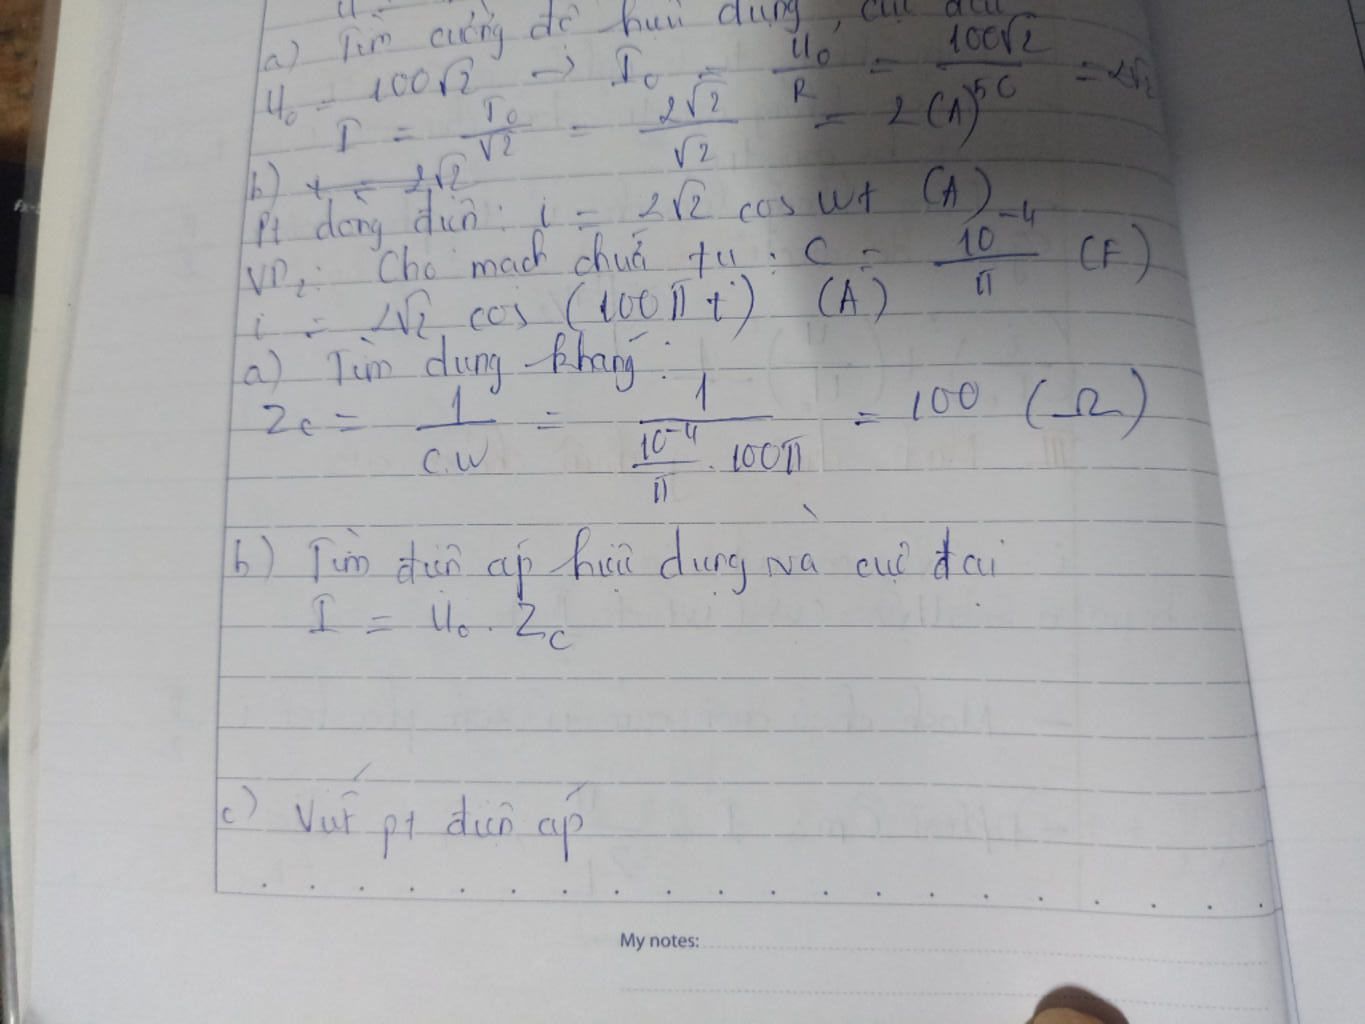 a) Tìm cường độ hiệu dụng, cực đại
U₀ = 100√2 → I₀ = U₀/R = 100√2/50 = 2√2
I = I₀/√2 = 2√2/√2 = 2 (A)
b) = 2√2
Pt dòng điện: i = 2√2 cos wt (A)
VD₂: Cho mạch chứa tụ: C = 10⁻⁴/π (F)
i = 2√2 cos (100πt) (A)
a) Tìm dung kháng:
Zc = 1/C.W = 1/(10⁻⁴/π . 100π) = 100 (Ω)
b) Tìm điện áp hiệu dụng và cực đại
I = U₀ . Zc
c) Viết pt điện áp
My notes: